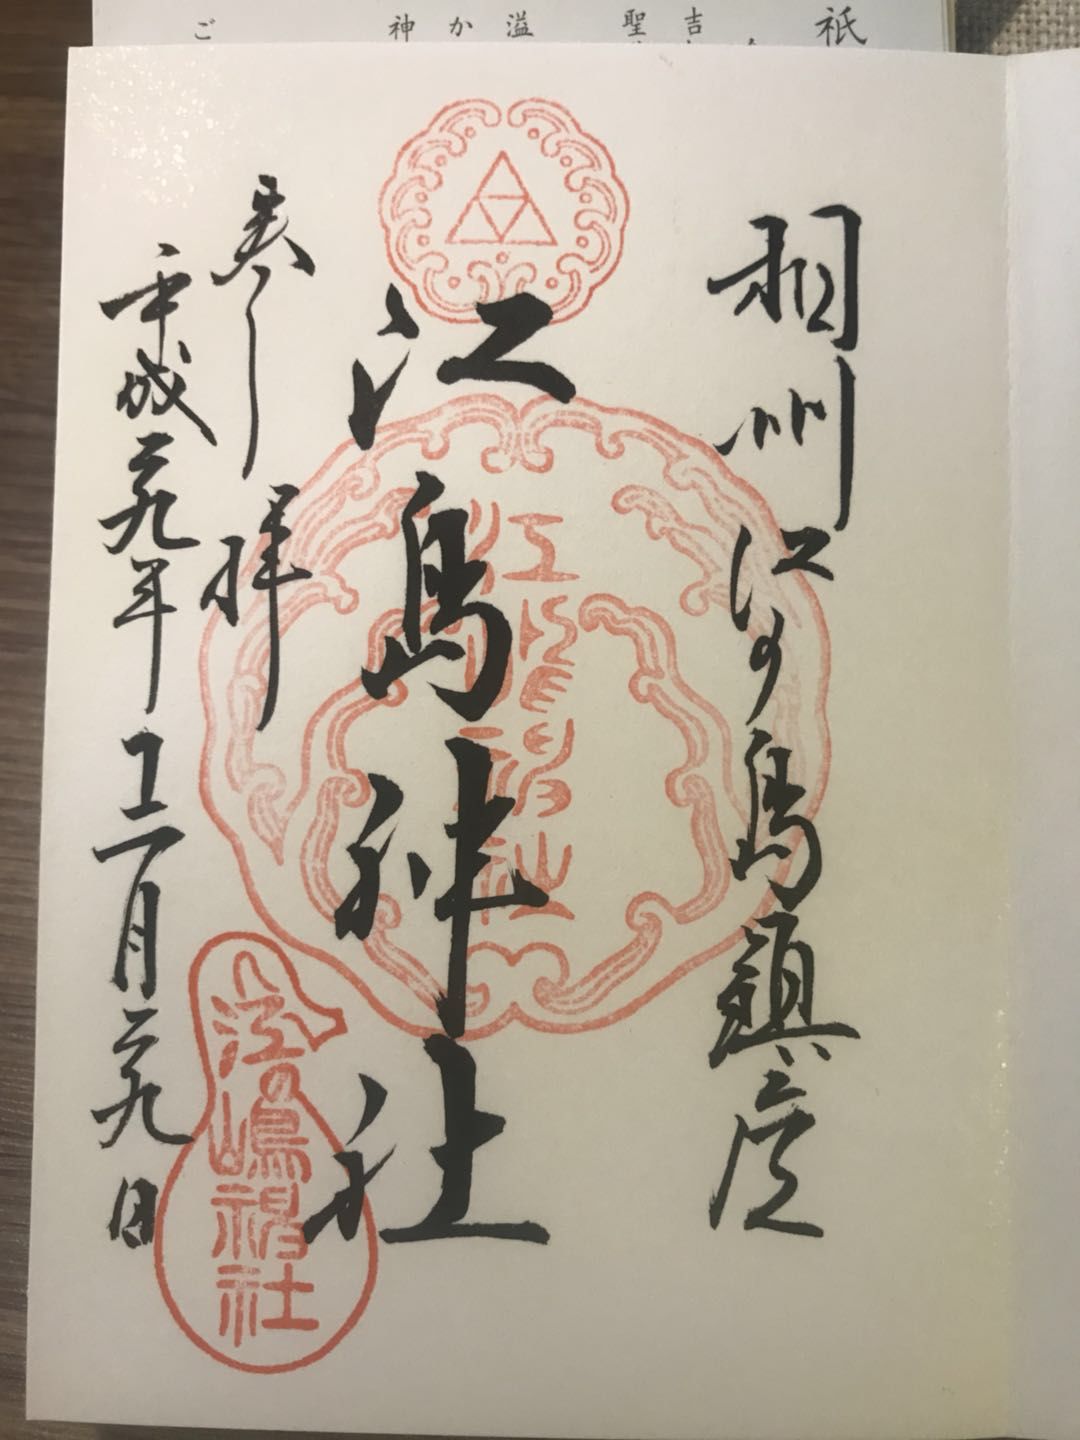 祇
吉
聖
溢
か
神
ご
相州江の島鎮座
江島神社
奉拝
平成二九年十二月二九日
江島神社
江の嶋神社